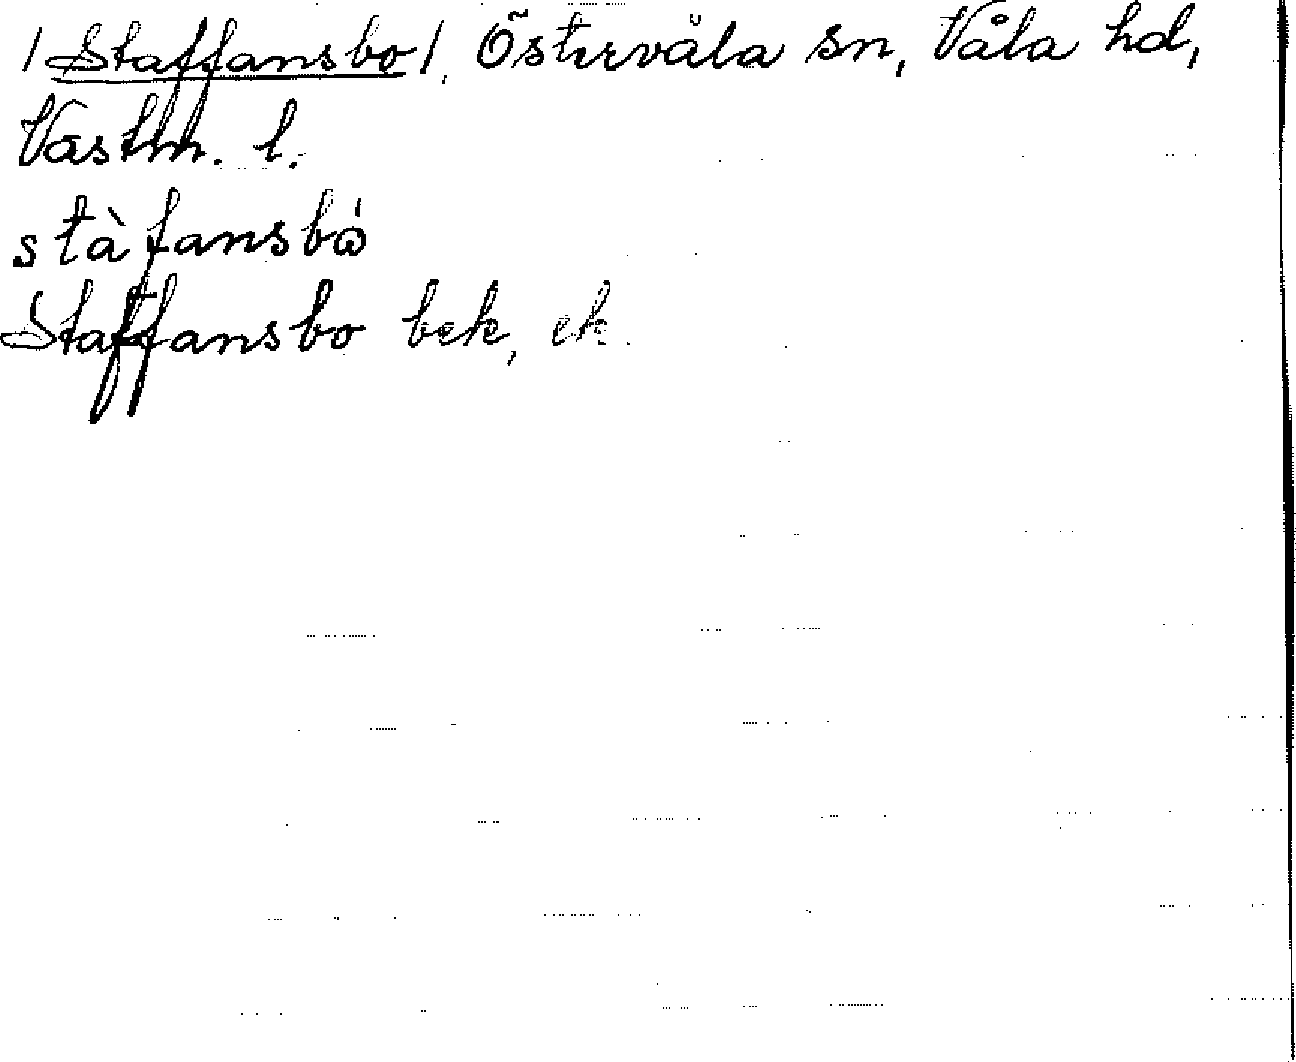 /Staffansbo/, Östervåla sn, Våla hd,
Västm. l.
stàfansbó
Staffansbo bek, ek.